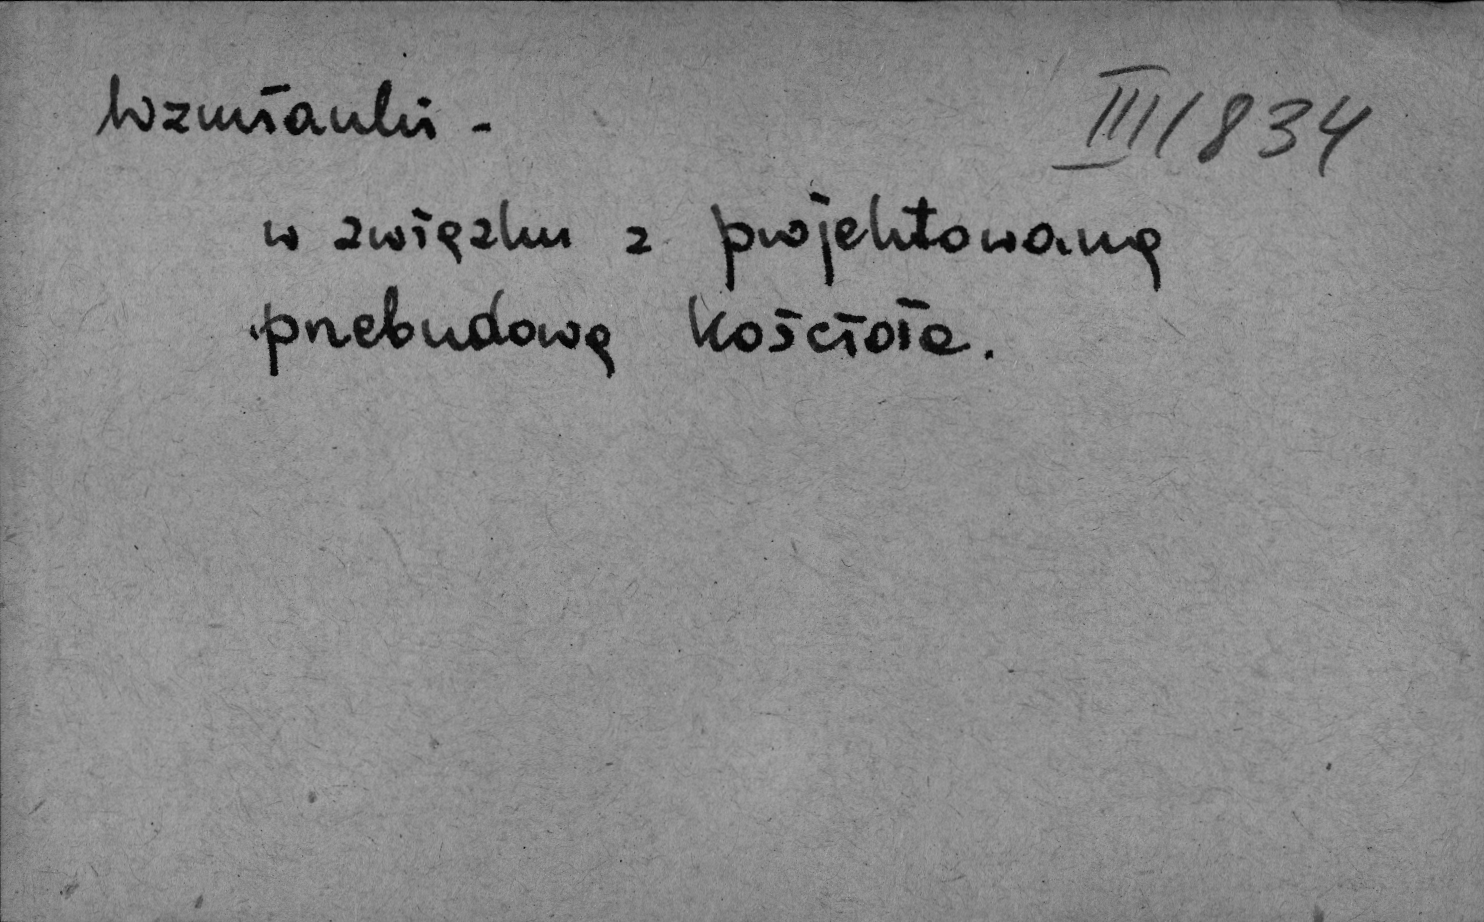 Wzmianki - III/834
w związku z projektowaną
przebudową kościoła.